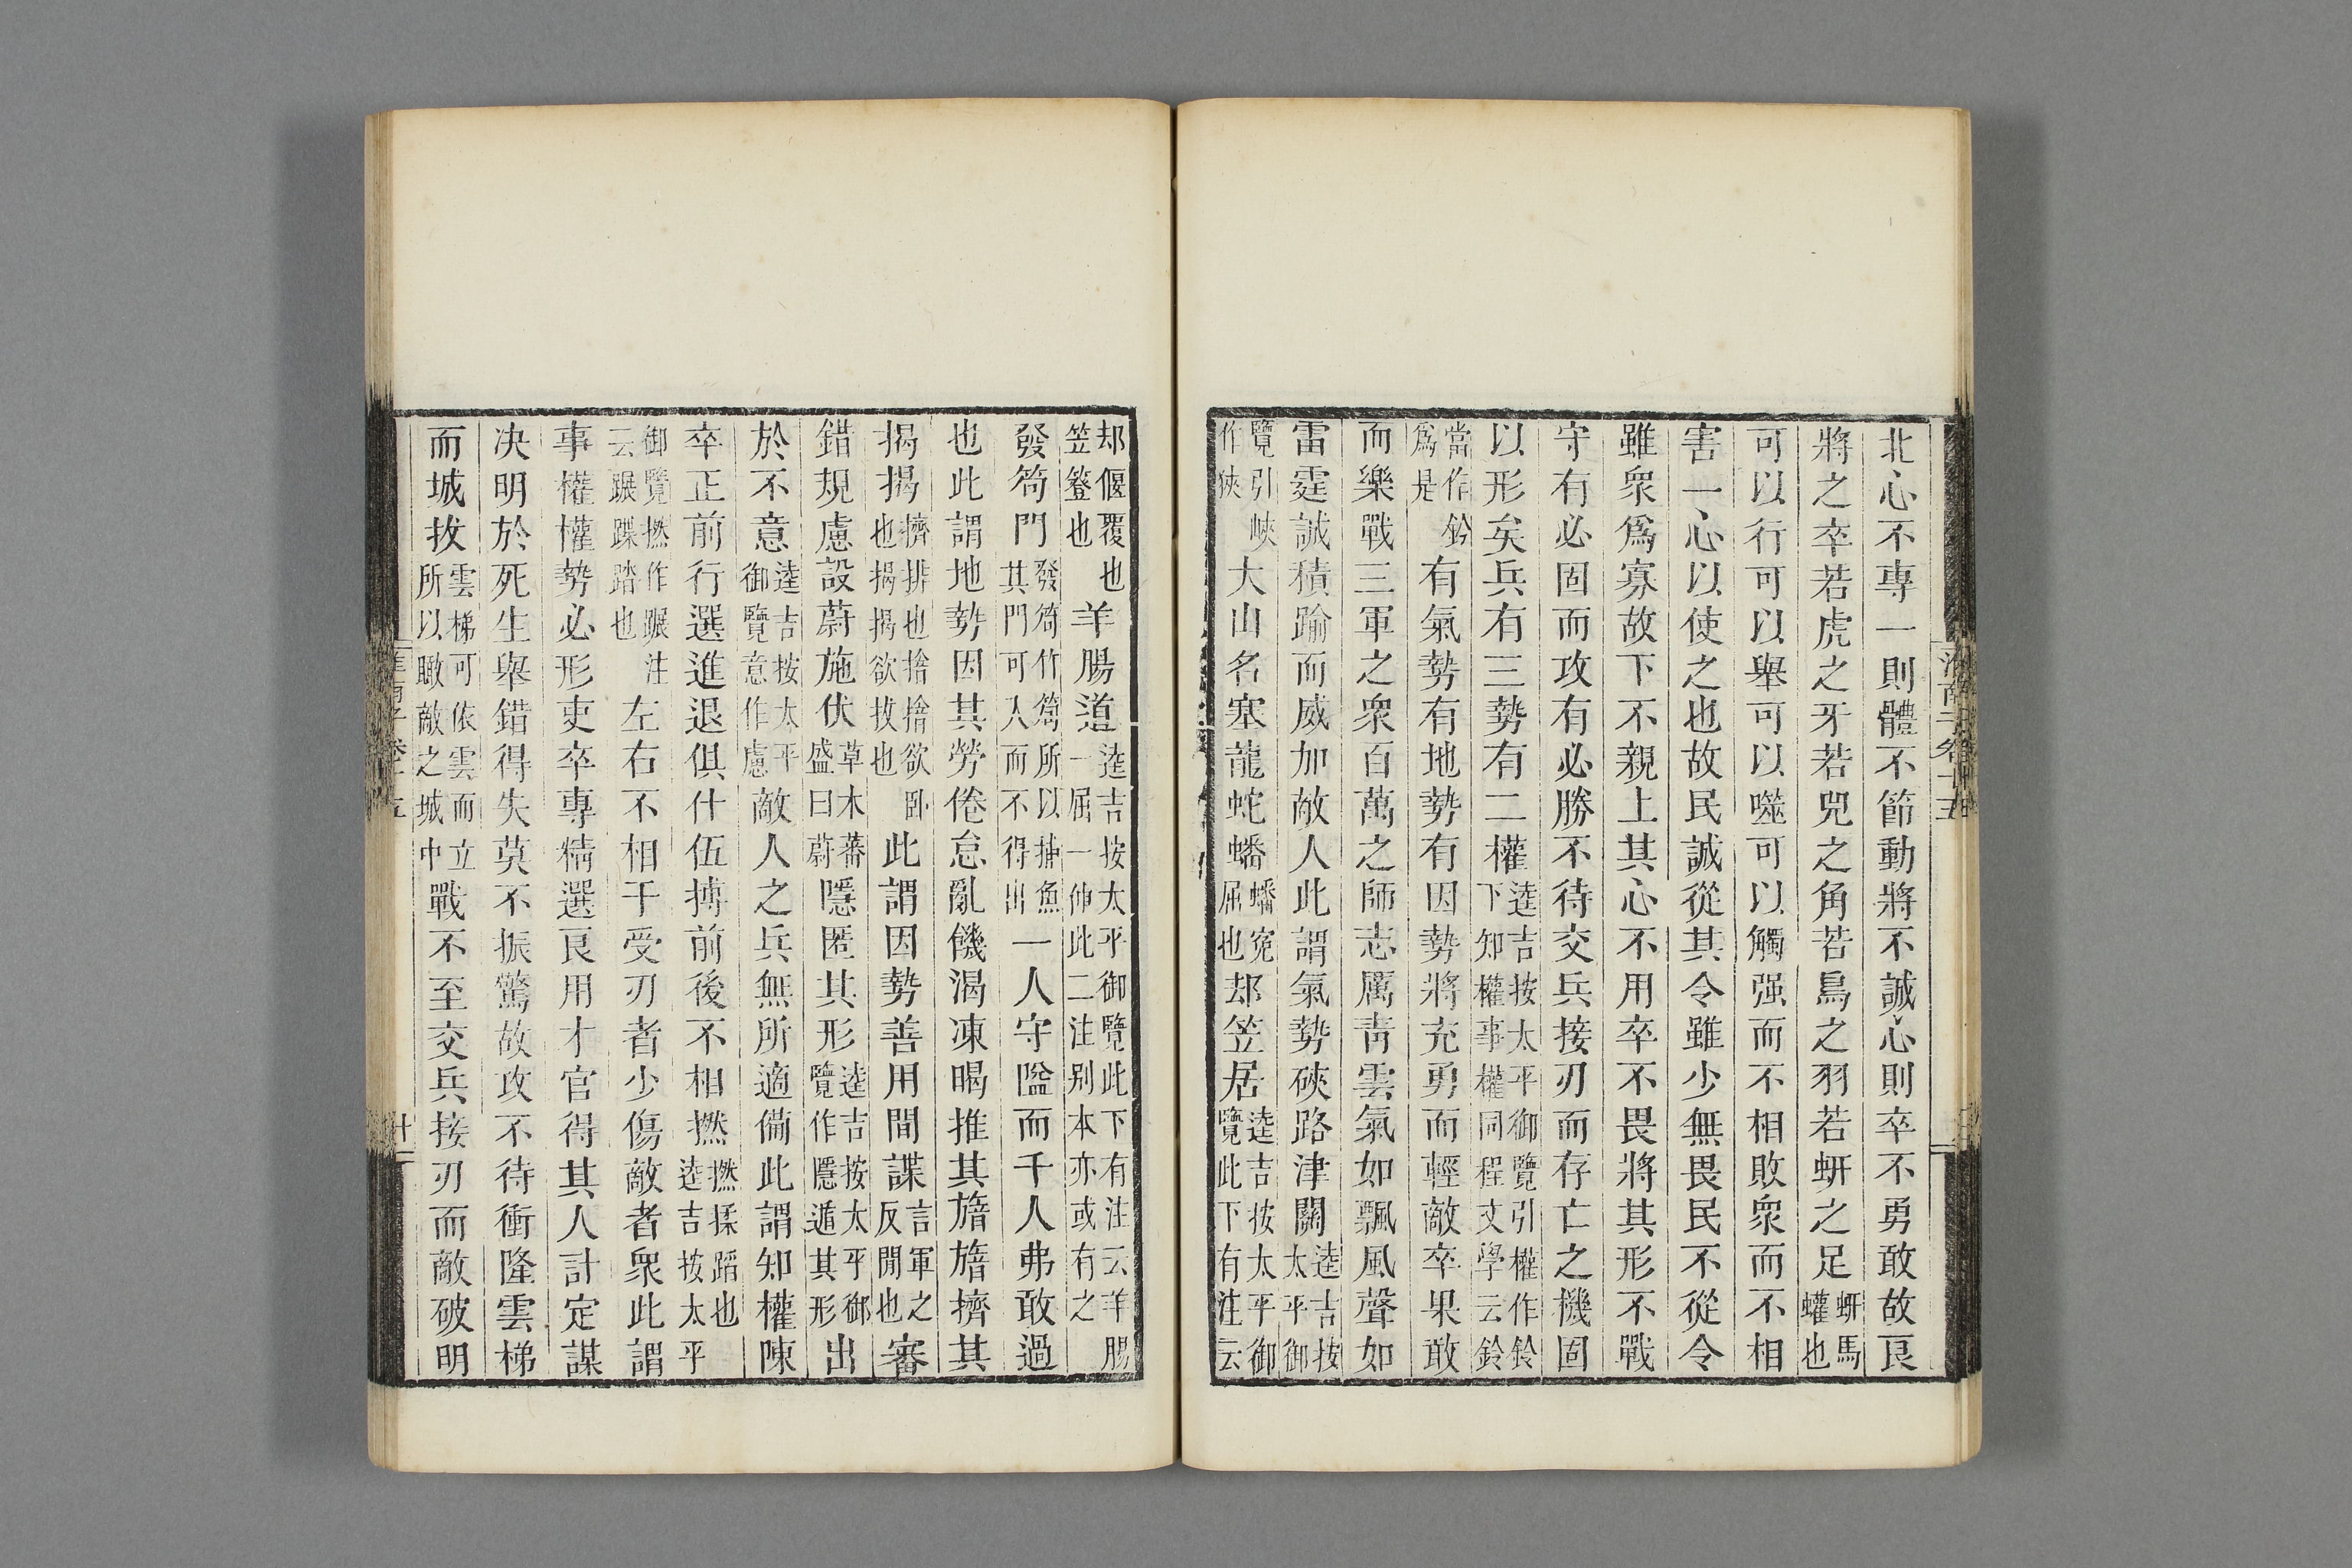 北心不專一則體不節動將不誠心則卒不勇敢故良
將之卒若虎之牙若兕之角若鳥之羽若蚈之足蚈馬蠸也
可以行可以舉可以噬可以觸强而不相敗衆而不相
害一心以使之也故民誠從其令雖少無畏民不從令
雖衆爲寡故下不親上其心不用卒不畏將其形不戰
守有必固而攻有必勝不待交兵接刃而存亡之機固
以形矣兵有三勢有二權逵吉按太平御覽引權作鈐下知權事權同程文學云鈴
當作鈐爲是有氣勢有地勢有因勢將充勇而輕敵卒果敢
而樂戰三軍之衆百萬之師志厲靑雲氣如飄風聲如
雷霆誠積踰而威加敵人此謂氣勢硤路津關逵吉按太平御
覽引峽作狹大山名塞龍蛇蟠蟠寃屈也却笠居逵吉按太平御覽此下有注云
却偃覆也笠簦也羊腸道逵吉按太平御覽此下有注云羊腸一屈一伸此二注别本亦或有之
發笱門發笱竹笱所以捕魚其門可入而不得出一人守隘而千人弗敢過
也此謂地勢因其勞倦怠亂饑渴凍暍推其㩜㩜擠其
揭揭擠排也㩜㩜欲卧也揭揭欲拔也此謂因勢善用間諜言軍之反間也審
錯規慮設蔚施伏草木蕃盛曰蔚隱匿其形逵吉按太平御覽作隱遁其形出
於不意逵吉按太平御覽意作慮敵人之兵無所適備此謂知權陳
卒正前行選進退俱什伍摶前後不相撚撚揉蹈也逵吉按太平
御覽撚作蹍注云蹍蹀踏也左右不相干受刃者少傷敵者衆此謂
事權權勢必形吏卒專精選良用才官得其人計定謀
决明於死生舉錯得失莫不振驚故攻不待衝隆雲梯
而城拔雲梯可依雲而立所以瞰敵之城中戰不至交兵接刃而敵破明